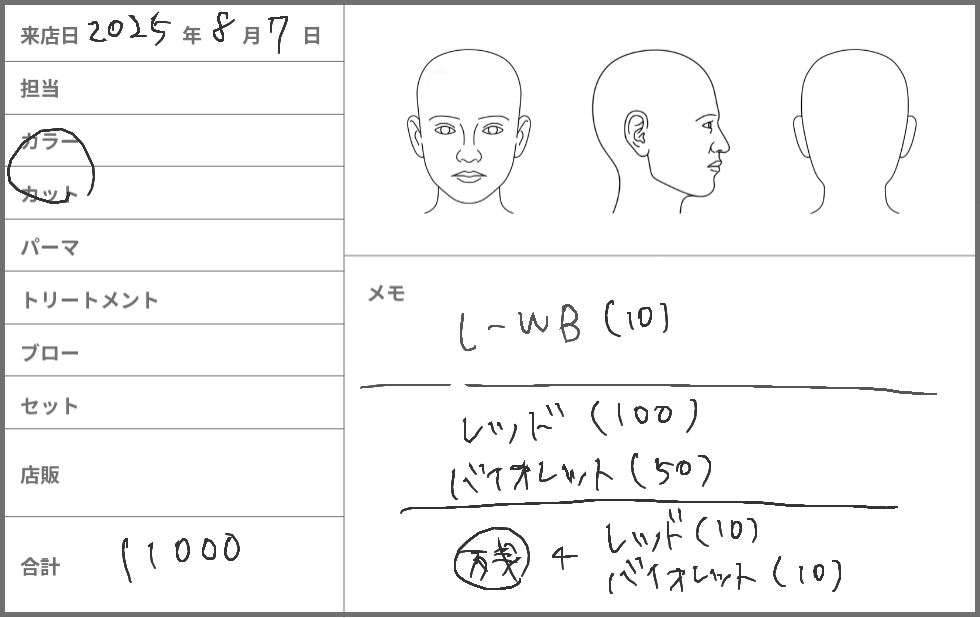 来店日 2025 年 8 月 7 日
担当
カラー
カット
パーマ
トリートメント
ブロー
セット
店販
合計 11000
メモ
L-WB (10)
レッド (100)
バイオレット (50)
+ レッド (10)
バイオレット (10)